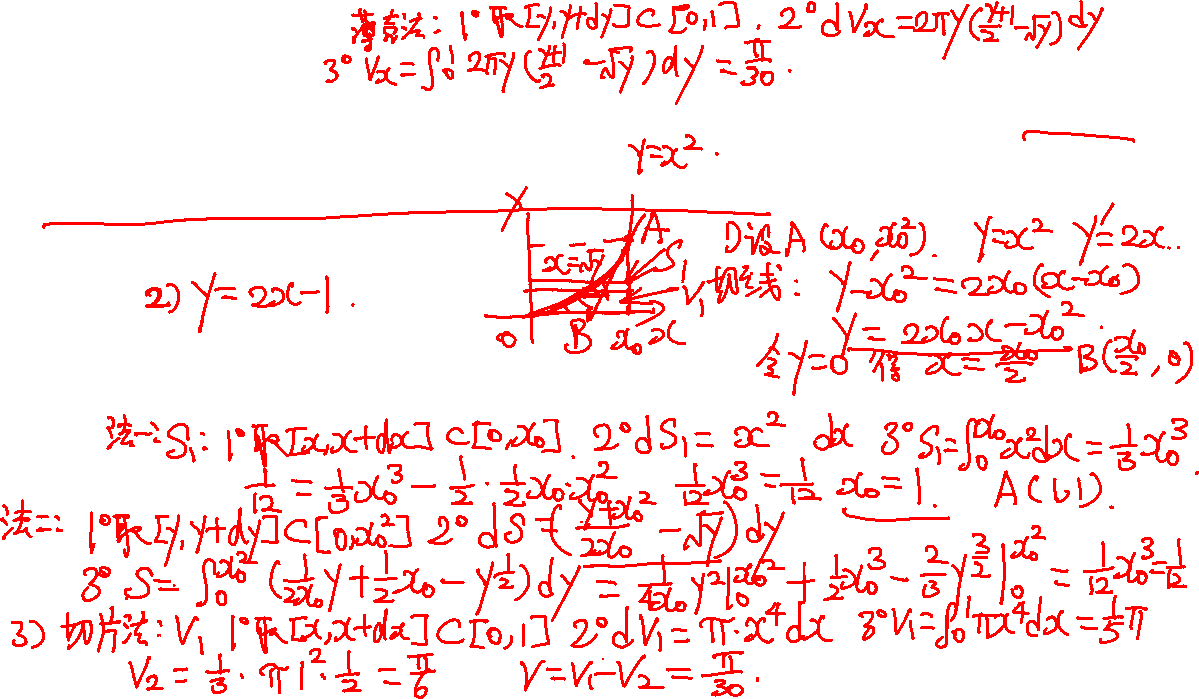 薄壳法: 1° 取[y, y+dy]⊂[0,1]. 2° dVx=2πy(y+1/2-√y)dy
3° Vx=∫₀¹ 2πy(y+1/2-√y)dy=π/30.
y=x².
y
A
x=√y
S₁
V₁
O B x₀ x
2) y=2x-1.
1) 设A(x₀,x₀²). y=x² y'=2x..
切线: y-x₀²=2x₀(x-x₀)
y=2x₀x-x₀².
令y=0 得 x=x₀/2 B(x₀/2,0)
法一: S₁: 1° 取[x,x+dx]⊂[0,x₀]. 2° dS₁=x² dx 3° S₁=∫₀^x₀ x²dx=1/3 x₀³.
1/12=1/3 x₀³-1/2·1/2 x₀·x₀² 1/12 x₀³=1/12 x₀=1. A(1,1).
法二: 1° 取[y,y+dy]⊂[0,x₀²] 2° dS=(y+x₀²/2x₀-√y)dy
3° S=∫₀^x₀² (1/2x₀ y+1/2 x₀-y^1/2)dy=1/4x₀ y²|₀^x₀²+1/2 x₀³-2/3 y^3/2|₀^x₀²=1/12 x₀³=1/12
3) 切片法: V₁ 1° 取[x,x+dx]⊂[0,1] 2° dV₁=π·x⁴dx 3° V₁=∫₀¹πx⁴dx=1/5 π
V₂=1/3·π1²·1/2=π/6 V=V₁-V₂=π/30.